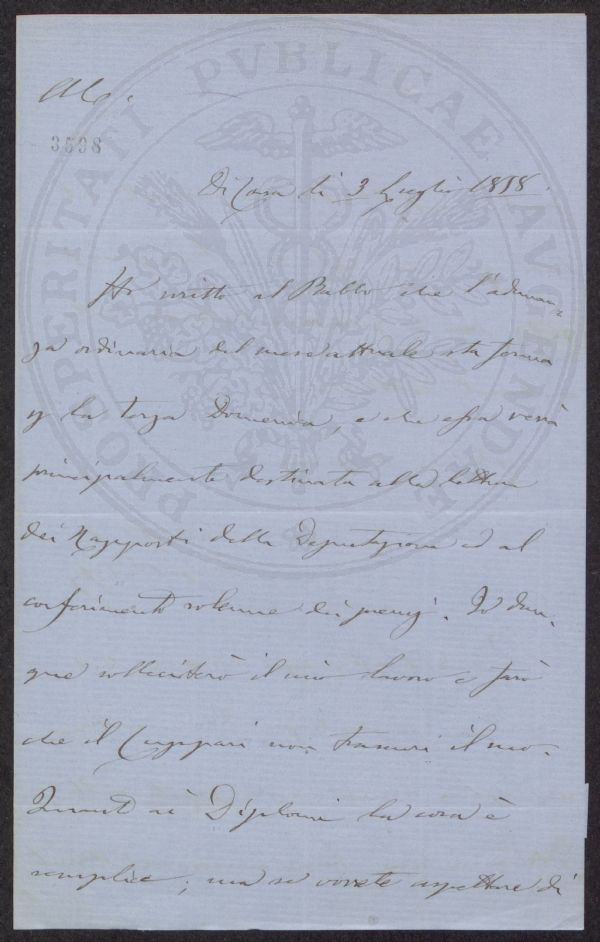 PROSPERITATI PVBLICAE AVGENDAE
3598
Di Casa li 3 Luglio 1858.
Ho scritto al Balbo che l'adunan-
za ordinaria del mese attuale sta ferma
p la terza Domenica, e che essa verrà
principalmente destinata alla lettura
dei Rapporti della Deputazione ed al
conferimento solenne dei premj. Io dun-
que solleciterò il mio lavoro e farò
che il Cuppari non trascuri il suo.
Quanto ai Diplomi la cosa è
semplice; ma se vorrete aspettare di